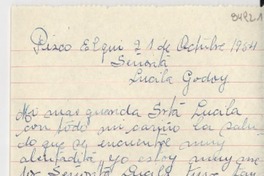 84221
Pisco Elqui 21 de Octubre 1954
Señorita
Lucila Godoy
Mi mas querida Srta Lucila
con todo mi cariño la salu
do que se encuentre muy
alentadita yo estoy muy
por Señorita Lucila